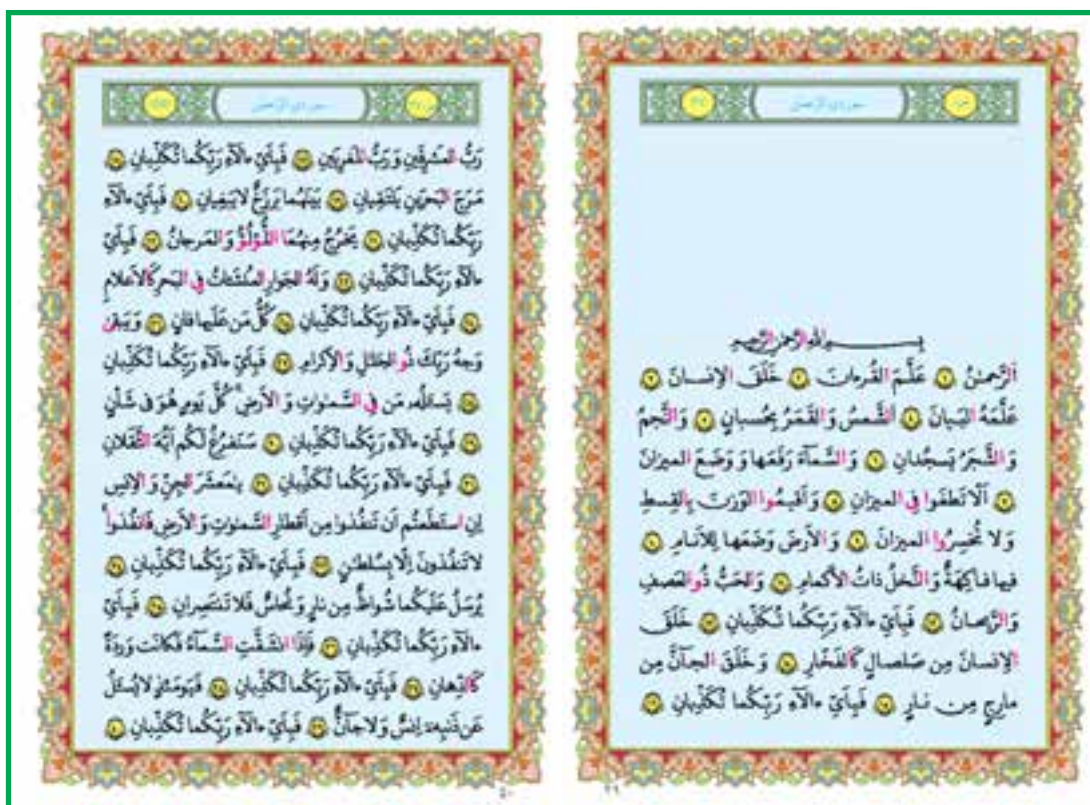 سوره‌ی الرّحمن
بِسمِ اللهِ الرَّحمٰنِ الرَّحیمِ
اَلرَّحمٰنُ ١ عَلَّمَ القُرءانَ ٢ خَلَقَ الاِنسانَ ٣
عَلَّمَهُ البَیانَ ٤ اَلشَّمسُ وَ القَمَرُ بِحُسبانٍ ٥ وَ النَّجمُ
وَ الشَّجَرُ یَسجُدانِ ٦ وَ السَّمآءَ رَفَعَها وَ وَضَعَ المیزانَ
٧ اَلّا تَطغَوا فِی المیزانِ ٨ وَ اَقیمُوا الوَزنَ بِالقِسطِ
وَ لا تُخسِرُوا المیزانَ ٩ وَ الاَرضَ وَضَعَها لِلاَنامِ ١٠
فیها فاکِهَةٌ وَ النَّخلُ ذاتُ الاَکمامِ ١١ وَ الحَبُّ ذُو العَصفِ
وَ الرَّیحانُ ١٢ فَبِاَیِّ ءالآءِ رَبِّکُما تُکَذِّبانِ ١٣ خَلَقَ
الاِنسانَ مِن صَلصالٍ کَالفَخّارِ ١٤ وَ خَلَقَ الجآنَّ مِن
مارِجٍ مِن نارٍ ١٥ فَبِاَیِّ ءالآءِ رَبِّکُما تُکَذِّبانِ ١٦
٤٩
سوره‌ی الرّحمن
رَبُّ المَشرِقَینِ وَ رَبُّ المَغرِبَینِ ١٧ فَبِاَیِّ ءالآءِ رَبِّکُما تُکَذِّبانِ ١٨
مَرَجَ البَحرَینِ یَلتَقِیانِ ١٩ بَینَهُما بَرزَخٌ لا یَبغِیانِ ٢٠ فَبِاَیِّ ءالآءِ
رَبِّکُما تُکَذِّبانِ ٢١ یَخرُجُ مِنهُمَا اللُّؤلُؤُ وَ المَرجانُ ٢٢ فَبِاَیِّ
ءالآءِ رَبِّکُما تُکَذِّبانِ ٢٣ وَ لَهُ الجَوارِ المُنشَئاتُ فِی البَحرِ کَالاَعلامِ
٢٤ فَبِاَیِّ ءالآءِ رَبِّکُما تُکَذِّبانِ ٢٥ کُلُّ مَن عَلَیها فانٍ ٢٦ وَ یَبقیٰ
وَجهُ رَبِّکَ ذُو الجَلالِ وَ الاِکرامِ ٢٧ فَبِاَیِّ ءالآءِ رَبِّکُما تُکَذِّبانِ
٢٨ یَسئَلُهُ مَن فِی السَّمٰوٰتِ وَ الاَرضِ ۚ کُلَّ یَومٍ هُوَ فی شَأنٍ
٢٩ فَبِاَیِّ ءالآءِ رَبِّکُما تُکَذِّبانِ ٣٠ سَنَفرُغُ لَکُم اَیُّهَ الثَّقَلانِ
٣١ فَبِاَیِّ ءالآءِ رَبِّکُما تُکَذِّبانِ ٣٢ یٰمَعشَرَ الجِنِّ وَ الاِنسِ
اِنِ استَطَعتُم اَن تَنفُذوا مِن اَقطارِ السَّمٰوٰتِ وَ الاَرضِ فَانفُذوا ۚ
لا تَنفُذونَ اِلّا بِسُلطٰنٍ ٣٣ فَبِاَیِّ ءالآءِ رَبِّکُما تُکَذِّبانِ ٣٤
یُرسَلُ عَلَیکُما شُواظٌ مِن نارٍ وَ نُحاسٌ فَلا تَنتَصِرانِ ٣٥ فَبِاَیِّ
ءالآءِ رَبِّکُما تُکَذِّبانِ ٣٦ فَاِذَا انشَقَّتِ السَّمآءُ فَکانَت وَردَةً
کَالدِّهانِ ٣٧ فَبِاَیِّ ءالآءِ رَبِّکُما تُکَذِّبانِ ٣٨ فَیَومَئِذٍ لا یُسئَلُ
عَن ذَنبِهِ اِنسٌ وَ لا جآنٌّ ٣٩ فَبِاَیِّ ءالآءِ رَبِّکُما تُکَذِّبانِ ٤٠
٥٠